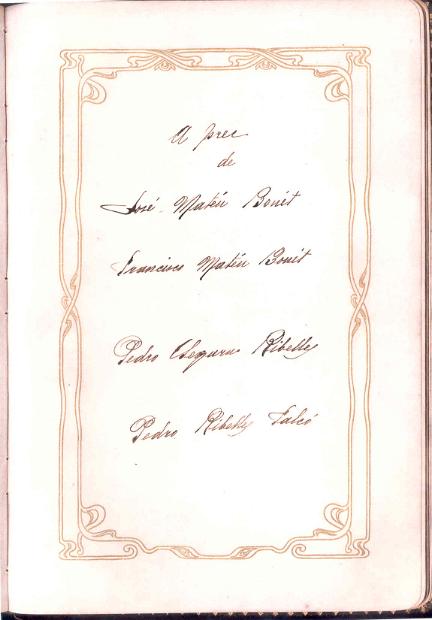 A prec
de
José Matéu Bonét
Francisco Matéu Bonét
Pedro Segura Ribelles
Pedro Ribelles Falcó